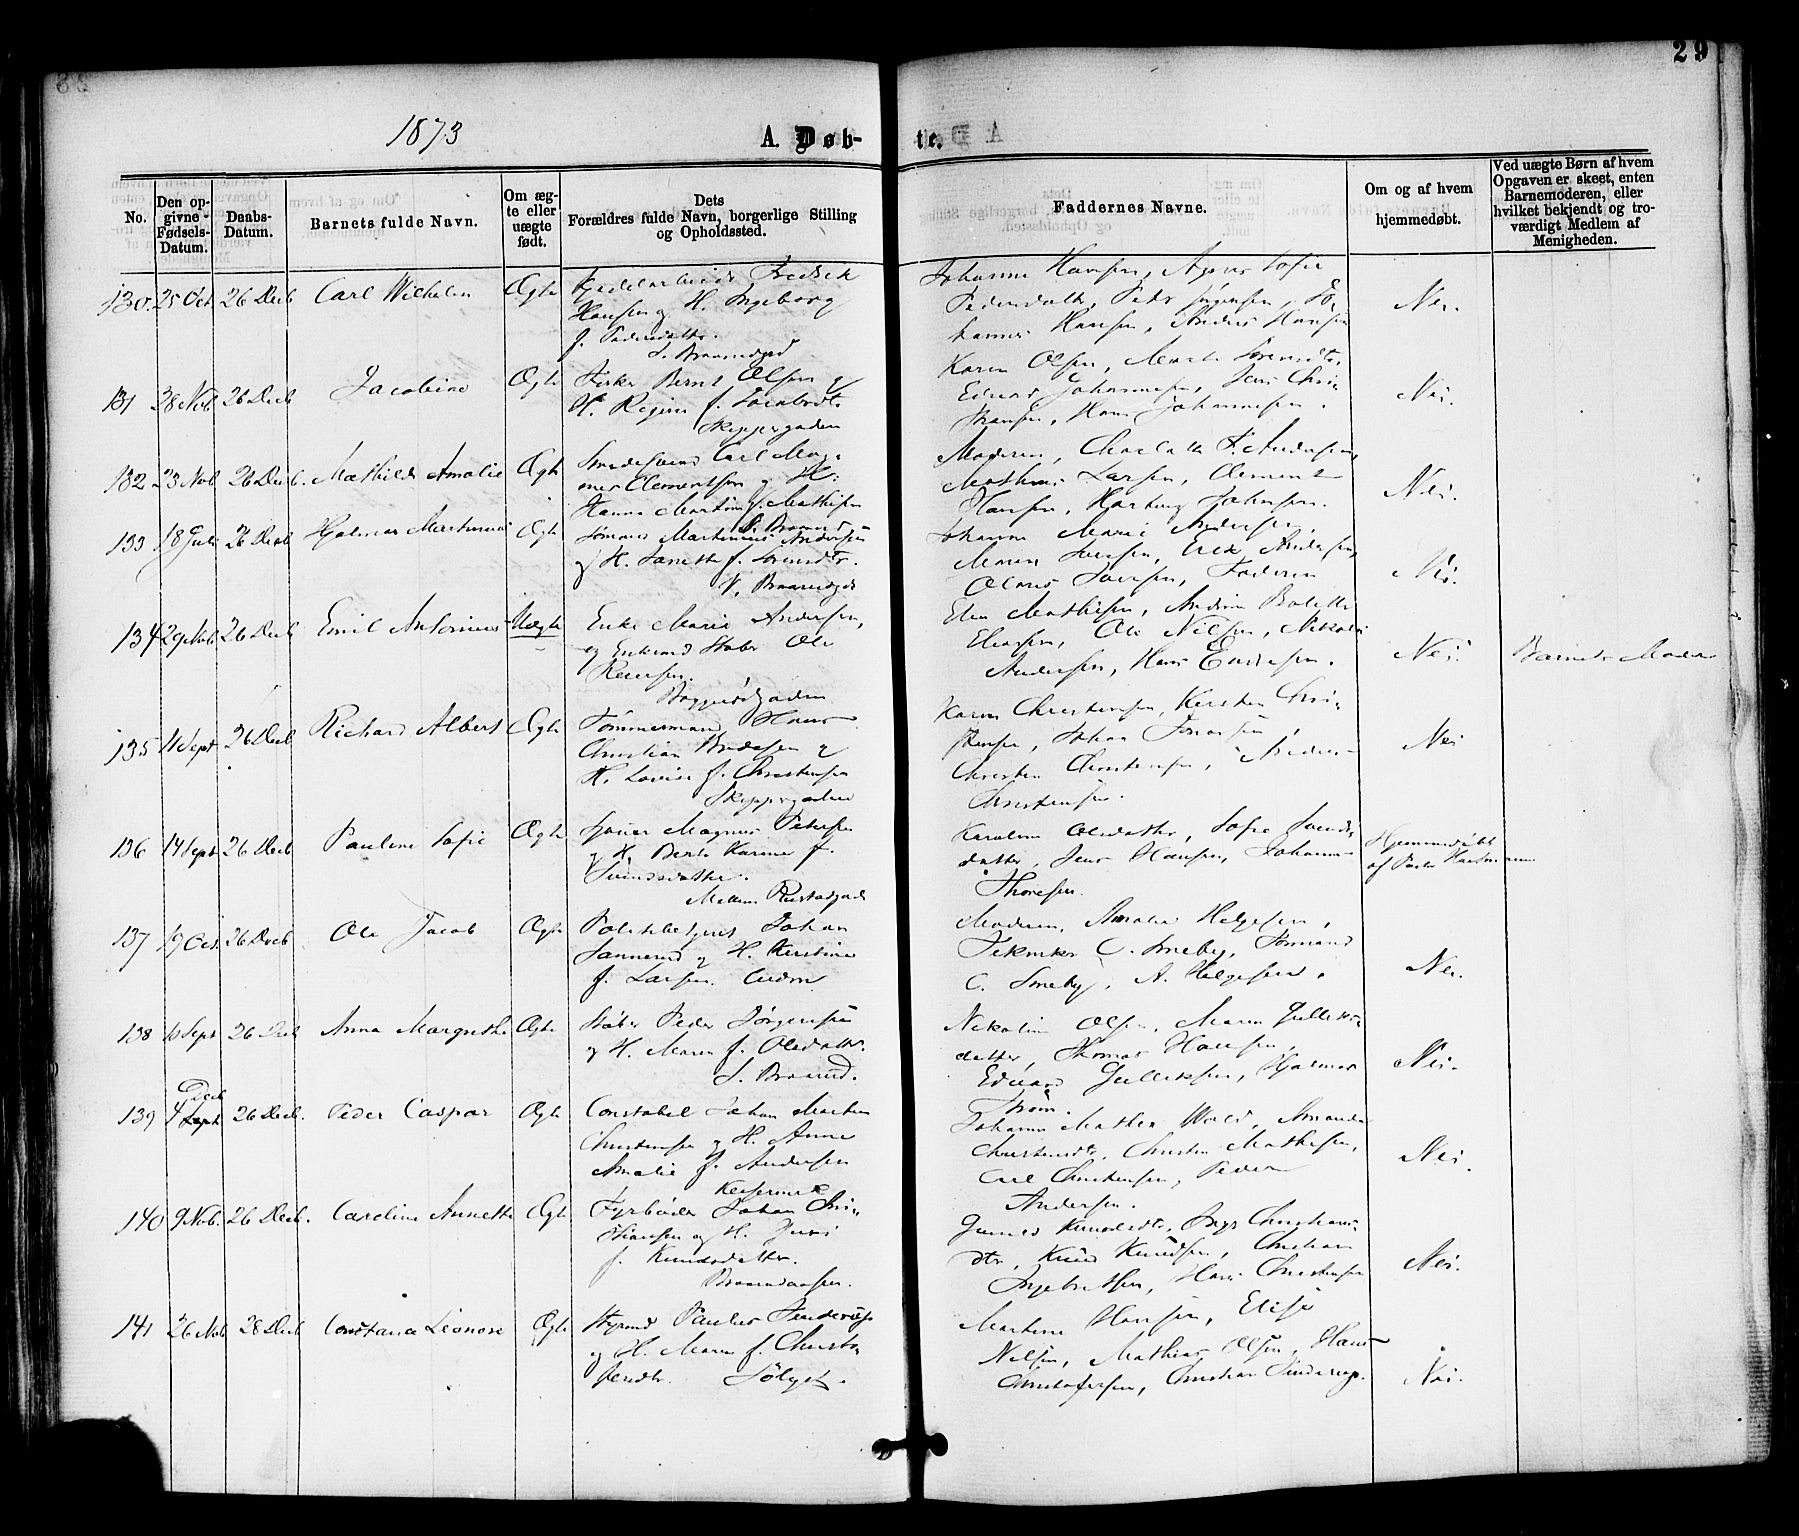 29
1873
A. Døb- te.
No.
Den op-
givne
Fødsels-
Datum.
Daabs-
Datum.
Barnets fulde Navn.
Om æg-
te eller
uægte
født.
Dets
Forældres fulde Navn, borgerlige Stilling
og Opholdssted.
Faddernes Navne.
Om og af hvem
hjemmedøbt.
Ved uægte Børn af hvem
Opgaven er skeet, enten
Barnemoderen, eller
hvilket bekjendt og tro-
værdigt Medlem af
Menigheden.
130. 25 Oct 26 Decb Carl Wilhelm Ægte
Fredrik
Hansen og H. Ingeborg
f. Pedersdatter.
Johanne Hansen, Agnes Sofie
Pedersdatt, Peder Jørgensen, Jo-
hannes Hansen, Anders Hansen
Nei.
131 28 Nob. 26 Decb Jacobine Ægte
Fisker Bernt Olsen og
H. Regine f. Jacobsdtr.
Skippergaden
Karen Olsen, Marte Sørensdtr.
Eduard Johannesen, Jens Chri-
stiansen, Hans Johannesen.
Nei.
132 23 Nob 26 Decb. Mathilde Amalie Ægte
Smedesvend Carl Mag-
nus Clementsen og H.
Hanna Martine f. Mathisen
Moderen, Charlotte F. Andersen,
Mathias Larsen, Clement
Hansen, Hartvig Johansen.
Nei.
133 18 Juli 26 Decb Hjalmar Martinius Ægte
Sømand Martinius Andersen
og H. Janette f. Sørensdtr.
V. Braarudgd
Johanne Marie Andersen,
Maren Iversen, Erik Andersen,
Olaus Iversen, Faderen
Nei.
134 29 Nob. 26 Decb Emil Antonius Uægte
Enke Maria Andersen,
og Enkemd Støber Ole
Reiersen.
Elen Mathisen, Andrine Bolette
Eliasen, Ole Nilsen, Nikolai
Andersen, Hans Endresen.
Nei. Barnets Moder
135 11 Sept 26 Decb Richard Albert Ægte
Tømmermand Hans
Christian Bredesen og
H. Lovise f. Christensen
Skippergaden
Karen Christensen, Kirsten Chri-
stensen, Johan Jonassen,
Christen Christensen,
Christensen.
Nei
136 14 Sept 26 Decb Pauline Sofie Ægte
Magnus Petersen
og H. Berte Karine f.
Svendsdatter.
Karoline Olsdatter, Sofie Svends-
datter, Jens Hansen, Johannes
Thoresen.
Hjemmedøbt
af Pastor Hartmann
137 19 Oct. 26 Decb Ole Jacob Ægte
Politibetjent Johan
Sannerud og H. Kirstine
f. Larsen.
Moderen, Amalie Helgesen,
C. Smeby, Formand
C. Smeby, A. Helgesen.
Nei.
138 10 Sept 26 Decb Anna Margrethe Ægte
Støber Peder Jørgensen
og H. Maren f. Olsdatter.
S. Braarud.
Nikoline Olsen, Maren Gulliks-
datter, Thomas Hansen,
Eduard Gulliksen, Hjalmar
Strøm.
Nei.
139 4 Decb Sept 26 Decb. Peder Caspar Ægte
Constabel Johan Martin
Christensen og H. Anne
Amalie f. Andersen
Johanne Mathea Wold, Amanda
Christensdtr, Christen Mathisen,
Carl Christensen, Peder
Andersen.
Nei.
140 9 Nob. 26 Decb. Caroline Annette Ægte
Fyrbøder Johan Chri-
stiansen og H.
f. Knudsdatter.
Braarudaasen.
Knudsdtr, Inger Christians-
dtr, Knud Knudsen, Christian
Ingebretsen, Hans Christensen
Nei.
141 26 Nob 28 Decb Constance Leonore Ægte
Styrmd Paulus
og H. Maren f. Christo-
fersdtr.
Martine Hansen, Elise
Nilsen, Mathias Olsen, Hans
Christofersen, Christian
Nei.